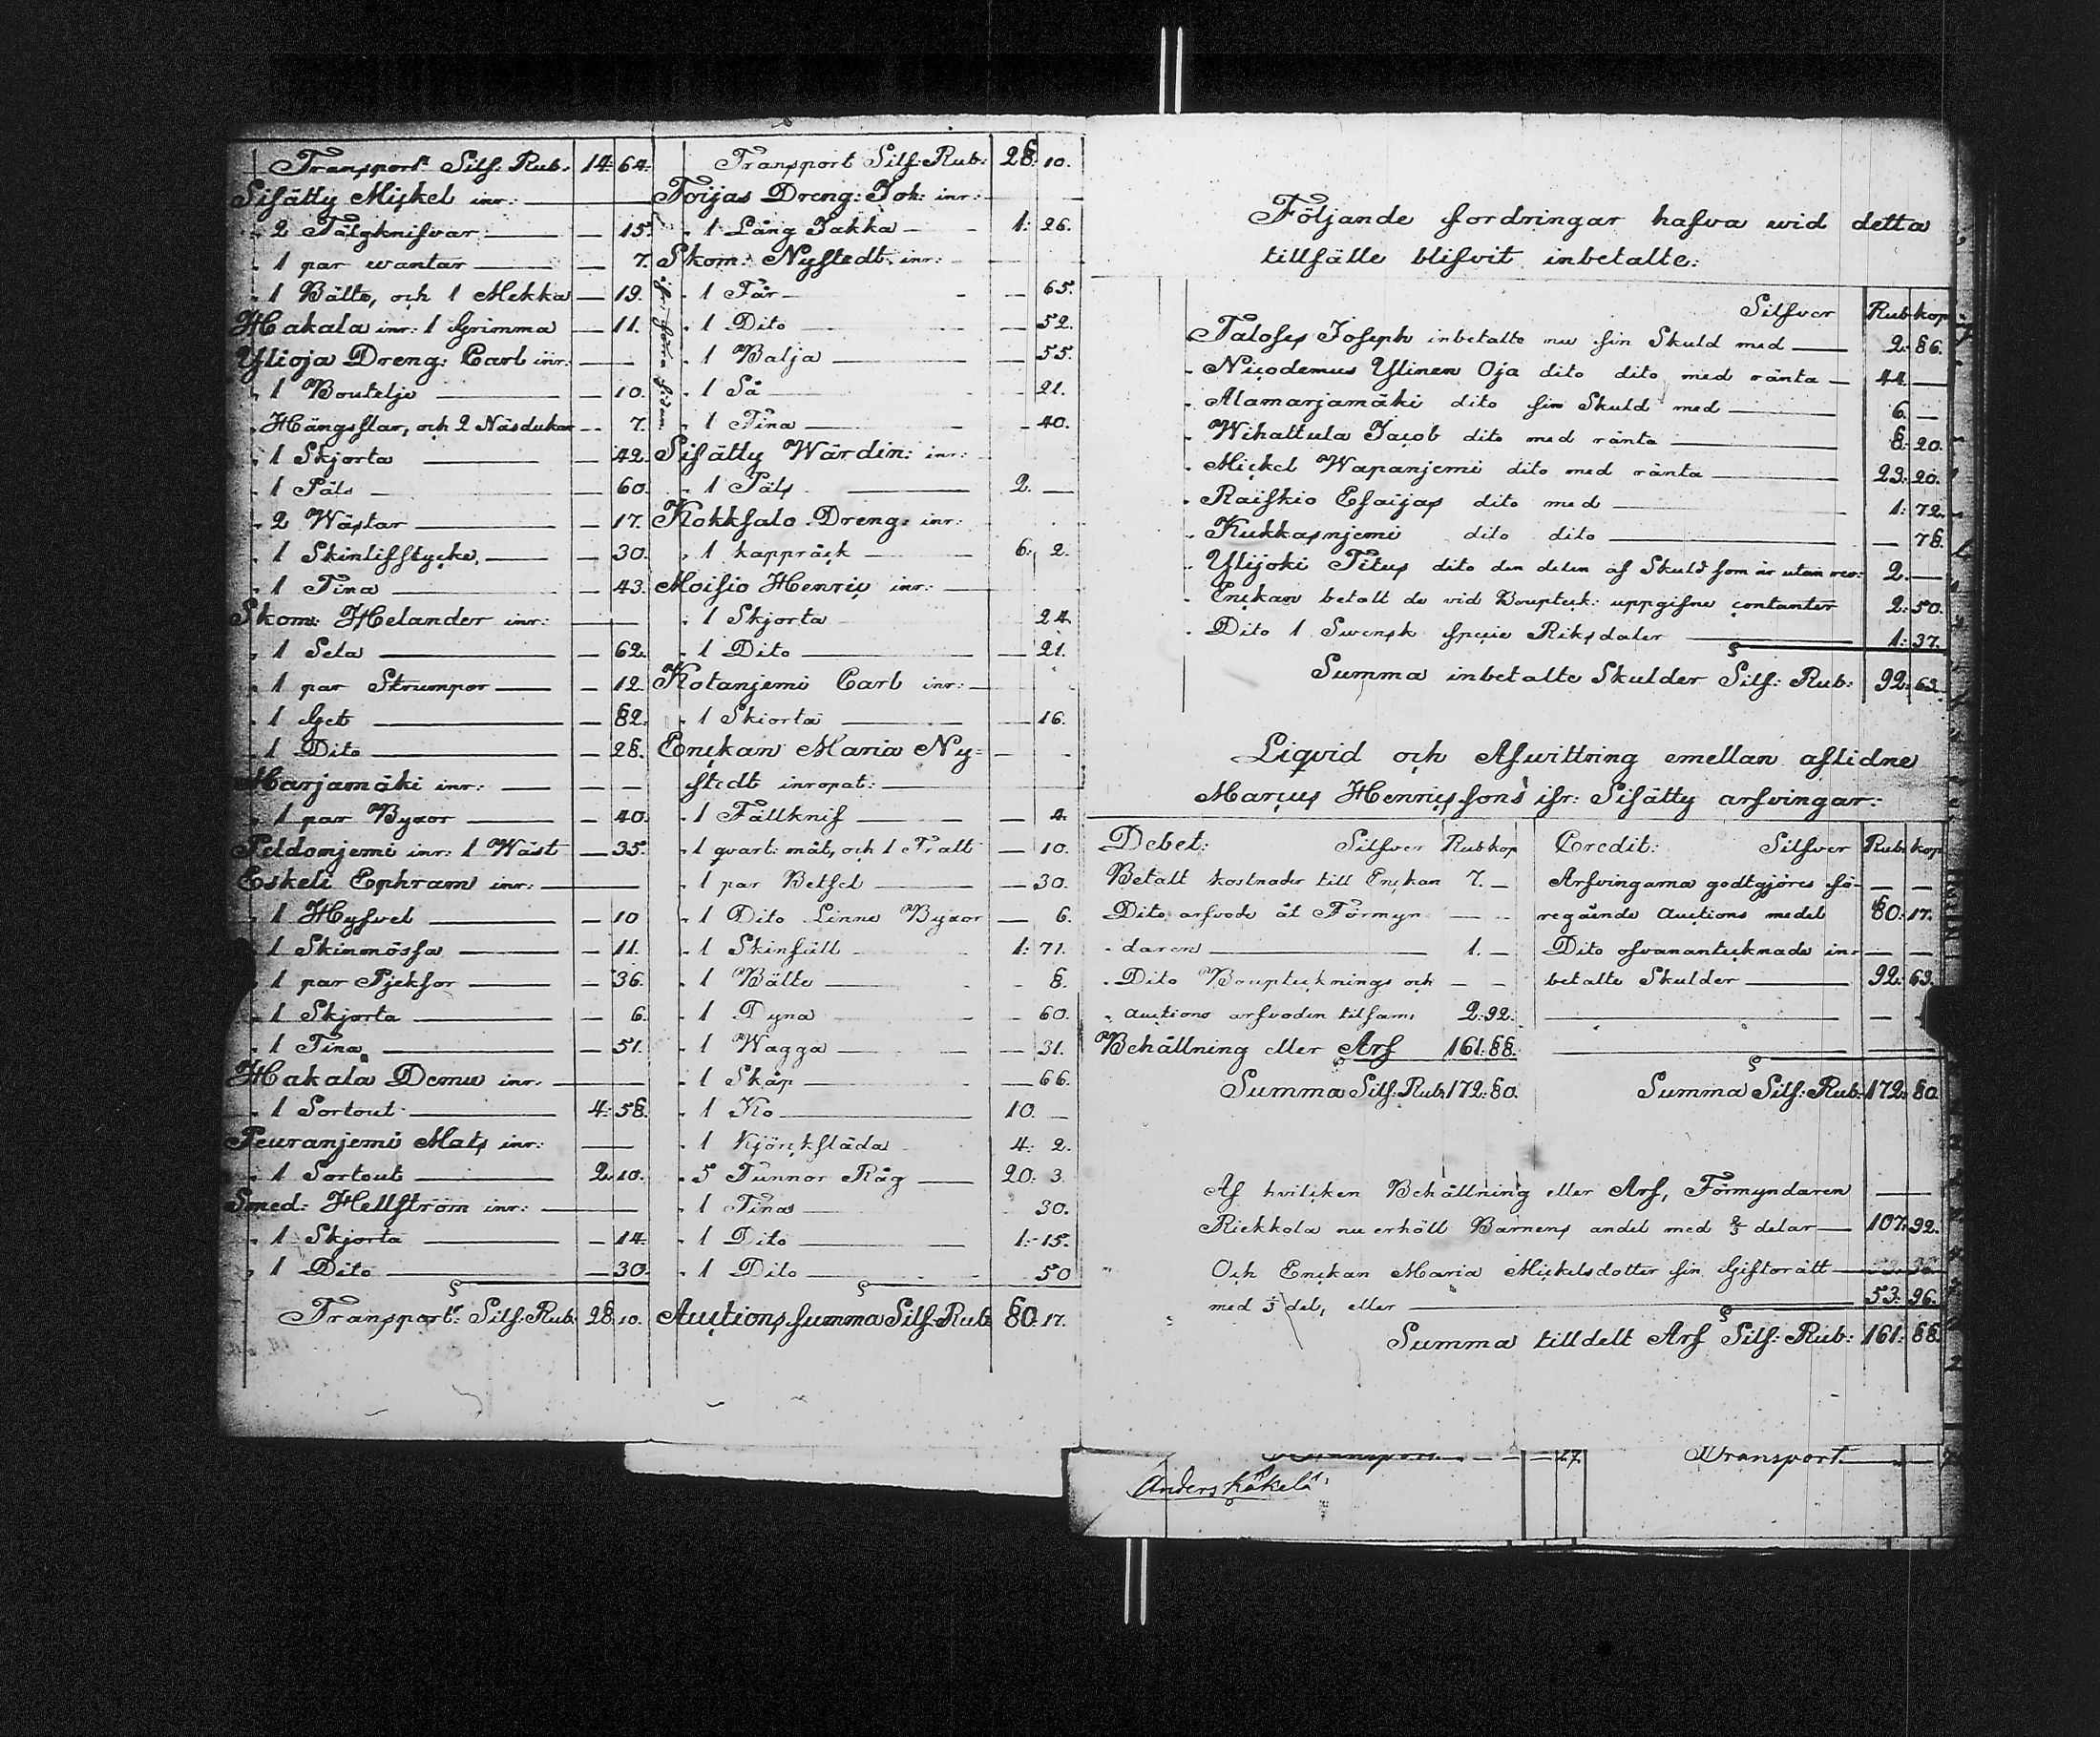 Transport Silf: Rub: 14: 64.
Sifätty Mickel inr:
" 2 Tälgknifvar — 15.
" 1 par wantar — 7.
" 1 Bälte, och 1 Mekka — 19.
Hakala inr: 1 Grimma — 11.
Ylioja Dreng: Carl inr:
" 1 Boutelje — 10.
" Hängslar, och 2 Näsdukar — 7.
" 1 Skjorta — 42.
" 1 Päls — 60.
" 2 Wästar — 17.
" 1 Skinlifstycke — 30.
" 1 Tina — 43.
Skom: Helander inr:
" 1 Sela — 62.
" 1 par Strumpor — 12.
" 1 Get — 82.
" 1 Dito — 28.
Marjamäki inr:
" 1 par Byxor — 40.
Peldonjemi inr: 1 Wäst — 35.
Eskeli Ephram inr:
" 1 Hyfvel — 10
" 1 Skinmössa — 11.
" 1 par Pjeksor — 36.
" 1 Skjorta — 6.
" 1 Tina — 51.
Hakala Demu inr:
" 1 Sortout — 4: 58.
Peuranjemi Mats inr:
" 1 Sortout — 2: 10.
Smed: Hellström inr:
" 1 Skjorta — 14.
" 1 Dito — 30.
Transport: Silf: Rub: 28: 10.
Transport Silf: Rub: 28: 10.
Toijas Dreng: Joh: inr:
" 1 Lång Jakka — 1: 26.
Skom: Nystedt inr:
" 1 Får — 65.
" 1 Dito — 52.
" 1 Balja — 55.
" 1 Så — 21.
" 1 Tina — 40.
Sifätty Wärdin: inr:
" 1 Päls — 2. —
Kokksalo Dreng: inr:
" 1 kappräck — 6: 2.
Moisio Henric inr:
" 1 Skjorta 24.
" 1 Dito — 21.
Kotanjemi Carl inr:
" 1 Skiorta — 16.
Enckan Maria Ny=
stedt inropat:
" 1 Fällknif — 4.
" 1 qvart: mått, och 1 Tratt — 10.
" 1 par Betsel — 30.
" 1 Dito Linne Byxor — 6.
" 1 Skinfäll 1: 71.
" 1 Bälte — 8.
" 1 Dyna — 60.
" 1 Wagga — 31.
" 1 Skåp — 66.
" 1 Ko — 10. —
" 1 Kjörcksläda 4: 2.
" 5 Tunnor Råg — 20: 3.
" 1 Tina — 30.
" 1 Dito — 1: 15.
" 1 Dito — 50
Auctions summa Silf: Rub: 80: 17.
Följande fordringar hafva wid detta
tillfälle blifvit inbetalte:
Silfver Rub kop
Taloses Joseph inbetalte nu sin Skuld med — 2: 86.
" Nicodemus Ylinen Oja dito dito med ränta — 44. —
" Alamarjamäki dito sin Skuld med — 6. —
" Wihattula Jacob dito med ränta — 8: 20.
" Mickel Wapanjemi dito med ränta — 23: 20.
" Raiskio Esaijas dito med — 1: 72.
" Kukkasnjemi dito dito — 78.
" Ylijoki Titus dito den delen af Skuld som är utan rev: 2. —
" Enckan betalt de vid Boupteck: uppgifne contanter 2: 50.
" Dito 1 Swensk specie Riksdaler — 1: 37.
Summa inbetalte Skulder Silf: Rub: 92: 63.
Liqvid och Afwittring emellan aflidne
Marcus Henricssons ifr: Sifätty arfvingar:
Debet: Silfver Rub kop
Betalt kostnader till Enckan 7. —
Dito arfvode åt Förmyn
" daren — 1. —
" Dito Bouptecknings och
" auctions arfvoden tilsam: 2: 92.
Behållning eller Arf 161: 88.
Summa Silf: Rub: 172: 80.
Credit: Silfver Rub: kop
Arfvingarna godtgjöres fö-
regående Auctions medel 80: 17.
Dito ofvanantecknade in-
betalte Skulder — 92: 63.
Summa Silf: Rub: 172: 80
Af hvilcken Behållning eller Arf, Förmyndaren
Riekkola nu erhöll Barnens andel med 2/3 delar — 107: 92.
Och Enckan Maria Mickelsdotter sin Giftorätt
med 1/3 del, eller — 53: 96.
Summa tilldelt Arf Silf: Rub: 161: 88.
Transport — 27.
Transport.
Anders Käkelä